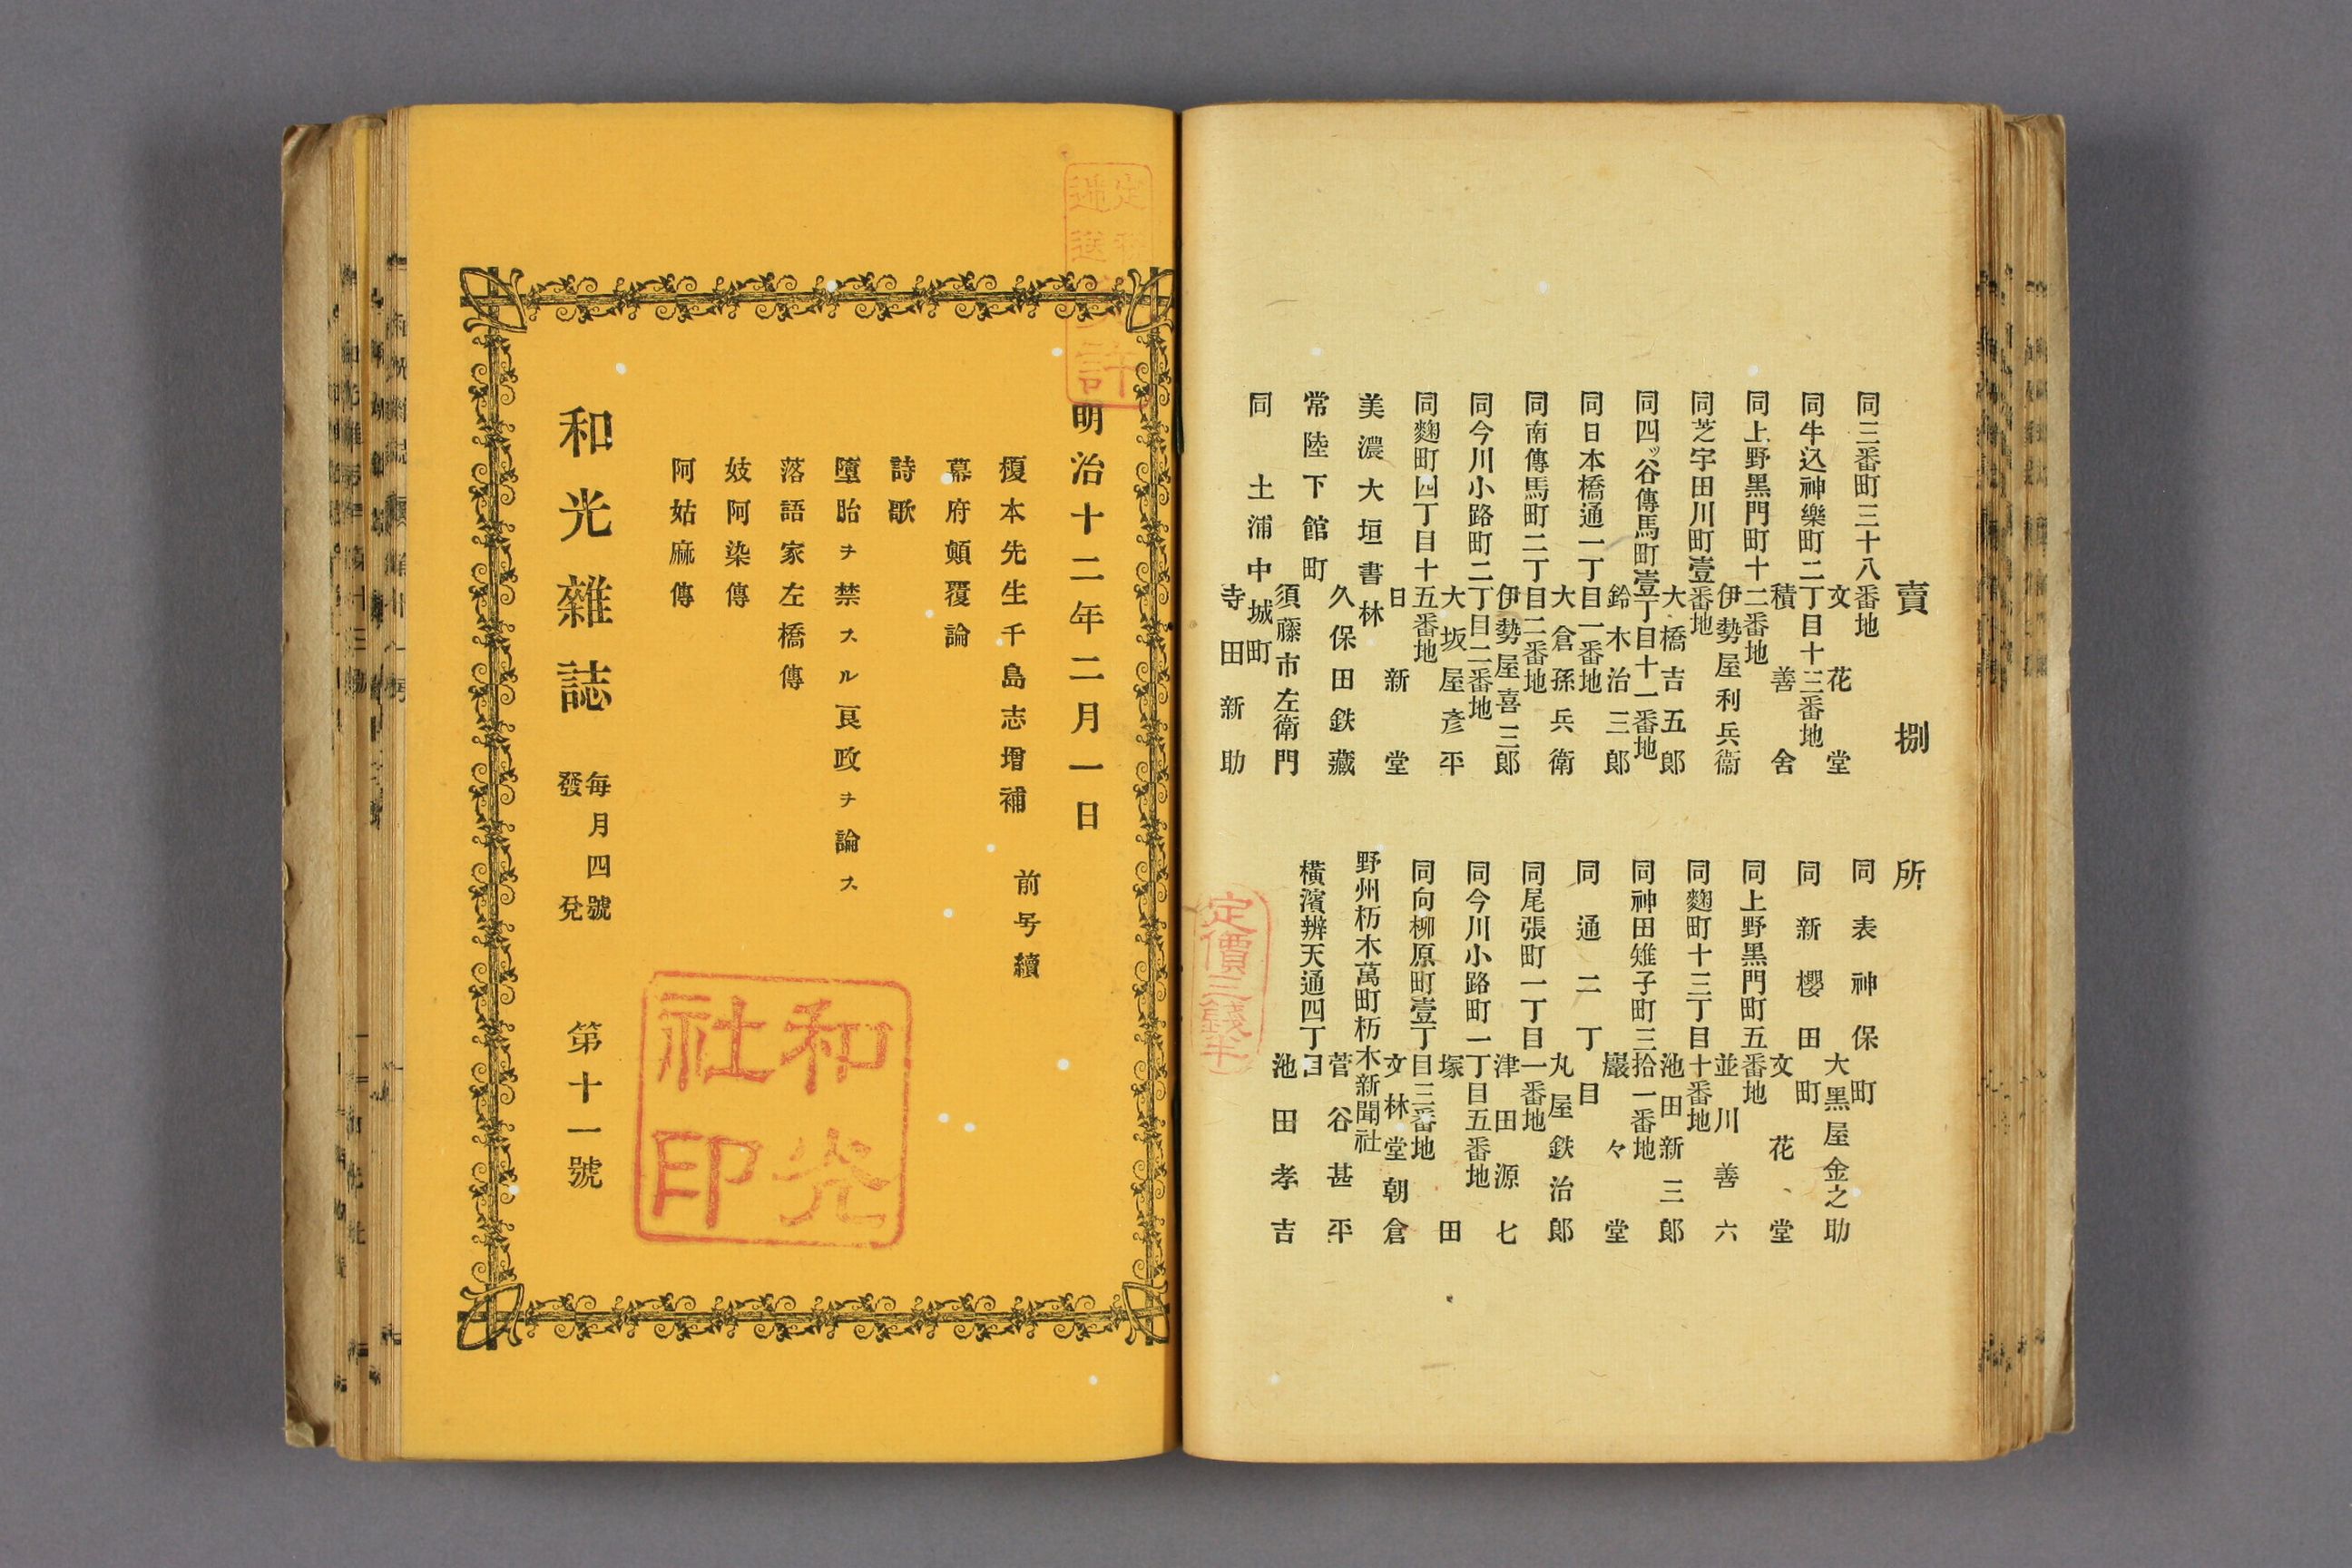 賣捌所
同三番町三十八番地
文花堂
同牛込神樂町二丁目十三番地
積善舍
同上野黑門町十二番地
伊勢屋利兵衞
同芝宇田川町壹番地
大橋吉五郎
同四ッ谷傳馬町壹丁目十一番地
鈴木治三郎
同日本橋通一丁目一番地
大倉孫兵衛
同南傳馬町二丁目二番地
伊勢屋喜三郎
同今川小路町二丁目二番地
大坂屋彥平
同麴町四丁目十五番地
日新堂
美濃大垣書林
久保田鉄藏
常陸下館町
須藤市左衛門
同土浦中城町
寺田新助
同表神保町
大黑屋金之助
同新櫻田町
文花堂
同上野黑門町五番地
並川善六
同麴町十三丁目十番地
池田新三郎
同神田雉子町三拾一番地
巖々堂
同通二丁目
丸屋鉄治郎
同尾張町一丁目一番地
津田源七
同今川小路町一丁目五番地
塚田
同向柳原町壹丁目三番地
文林堂朝倉
野州枥木萬町枥木新聞社
菅谷甚平
橫濱辨天通四丁目
池田孝吉
定價三錢半
遞送許
明治十二年二月一日
榎本先生千島志增補 前号續
幕府顚覆論
詩歌
墮胎ヲ禁スル良政ヲ論ス
落語家左橋傳
妓阿染傳
阿姑麻傳
和光雜誌 每月四號發兌 第十一號
和光社印